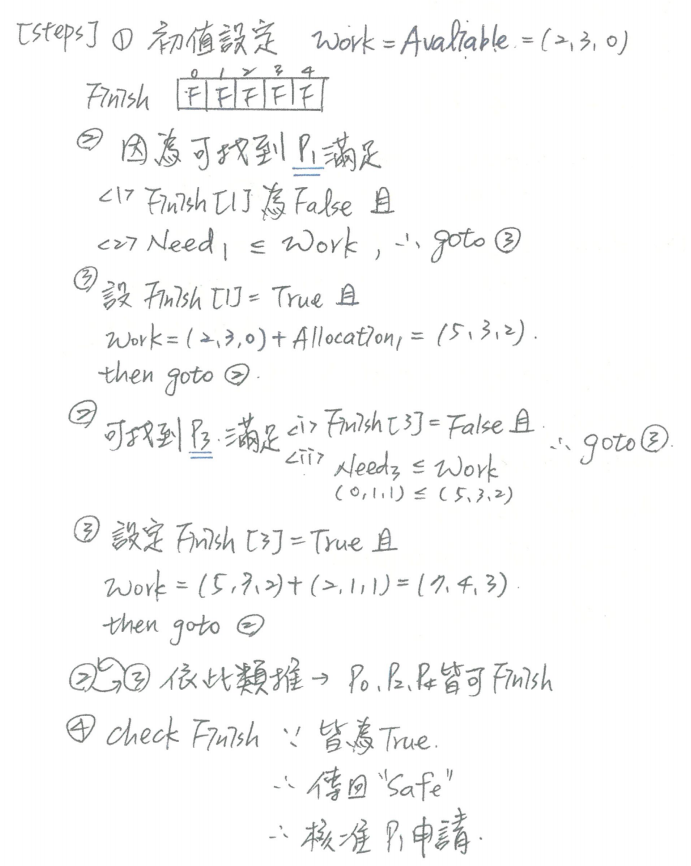 [steps] ① 初值設定 Work = Avaliable = (2,3,0)
0 1 2 3 4
Finish F F F F F
② 因為可找到 P₁ 滿足
<1> Finish [1] 為 False 且
<2> Need₁ ≤ Work , ∴ goto ③
③ 設 Finish [1] = True 且
Work = (2,3,0) + Allocation₁ = (5,3,2).
then goto ②.
② 可找到 P₃ 滿足 <i> Finish [3] = False 且 ∴ goto ③.
<ii> Need₃ ≤ Work
(0,1,1) ≤ (5,3,2)
③ 設定 Finish [3] = True 且
Work = (5,3,2) + (2,1,1) = (7,4,3).
then goto ②
②③ 依此類推 → P₀、P₂、P₄ 皆可 Finish
④ check Finish ∵ 皆為 True.
∴ 傳回 "Safe"
∴ 核准 P₁ 申請.